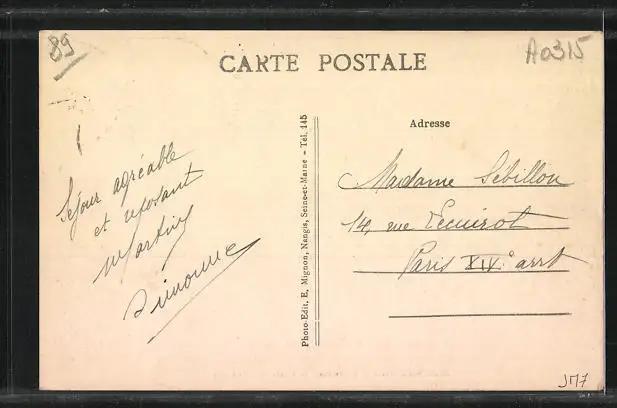 89
CARTE POSTALE
A0315
Séjour agréable
et reposant
Simonne
Photo-Edit. E. Mignon, Nangis, Seine-et-Marne - Tél. 145
Adresse
Madame Sébillon
14, rue Ecuirot
Paris XIV.e arrt
JM7